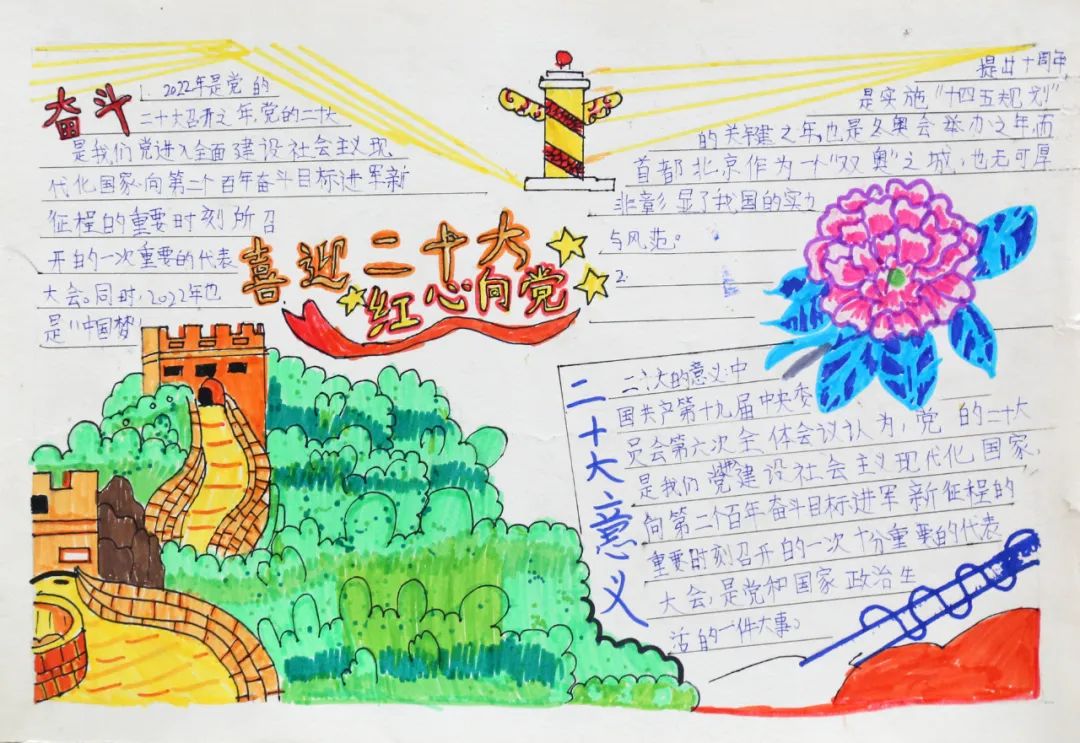 奋斗
1. 2022年是党的
二十大召开之年,党的二十大
是我们党进入全面建设社会主义现
代化国家向第二个百年奋斗目标进军新
征程的重要时刻所召
开的一次重要的代表
大会。同时,2022年也
是"中国梦"
提出十周年
是实施"十四五规划"
的关键之年,也是冬奥会举办之年,而
首都北京作为一个"双奥"之城,也无可厚
非彰显了我国的实力
与风范。
2.
喜迎二十大
红心向党
二十大意义
二十大的意义:中
国共产第十九届中央委
员会第六次全体会议认为,党的二十大
是我们党建设社会主义现代化国家,
向第二个百年奋斗目标进军新征程的
重要时刻召开的一次十分重要的代表
大会,是党和国家政治生
活的一件大事。